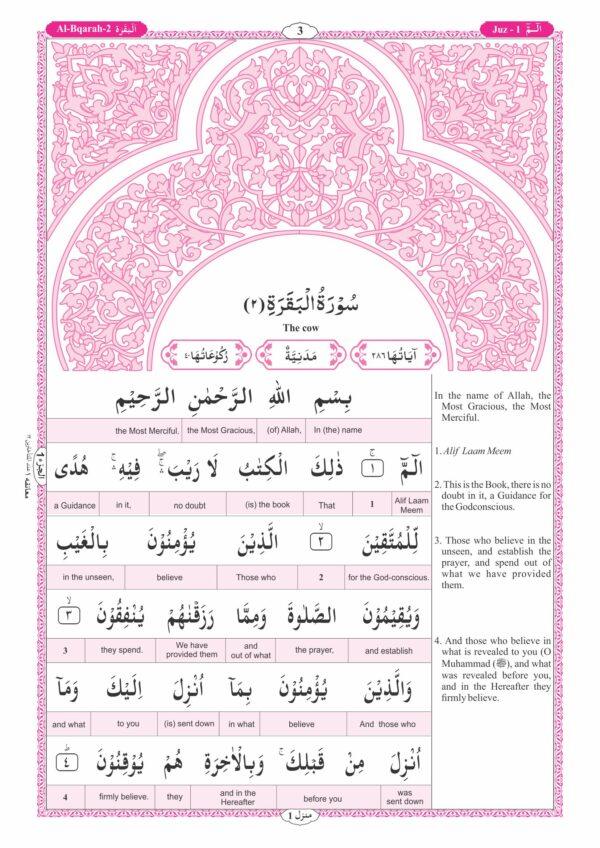 Al-Bqarah-2 البقرة
3
Juz - 1 الٓمّٓ
سُوۡرَةُ الۡبَقَرَةِ (٢)
The cow
اٰيَاتُهَا ٢٨٦ مَدَنِيَّةٌ رُكُوۡعَاتُهَا ٤٠
بِسۡمِ اللّٰهِ الرَّحۡمٰنِ الرَّحِيۡمِ
the Most Merciful. the Most Gracious, (of) Allah, In (the) name
الٓمّٓ ۚ ١ ذٰلِكَ الۡكِتٰبُ لَا رَيۡبَ ۛۖ فِيۡهِ ۛۚ هُدًى
a Guidance in it, no doubt (is) the book That 1 Alif Laam
Meem
لِّلۡمُتَّقِيۡنَ ۙ ٢ الَّذِيۡنَ يُؤۡمِنُوۡنَ بِالۡغَيۡبِ
in the unseen, believe Those who 2 for the God-conscious.
وَيُقِيۡمُوۡنَ الصَّلٰوةَ وَمِمَّا رَزَقۡنٰهُمۡ يُنۡفِقُوۡنَ ۙ ٣
3 they spend. We have provided them and out of what the prayer, and establish
وَالَّذِيۡنَ يُؤۡمِنُوۡنَ بِمَاۤ اُنۡزِلَ اِلَيۡكَ وَمَاۤ
and what to you (is) sent down in what believe And those who
اُنۡزِلَ مِنۡ قَبۡلِكَ ۚ وَبِالۡاٰخِرَةِ هُمۡ يُوۡقِنُوۡنَ ؕ ٤
4 firmly believe. they and in the Hereafter before you was sent down
In the name of Allah, the
Most Gracious, the Most
Merciful.
1. Alif Laam Meem
2. This is the Book, there is no
doubt in it, a Guidance for
the Godconscious.
3. Those who believe in the
unseen, and establish the
prayer, and spend out of
what we have provided
them.
4. And those who believe in
what is revealed to you (O
Muhammad (ﷺ), and what
was revealed before you,
and in the Hereafter they
firmly believe.
الجزء 1
منزل 1